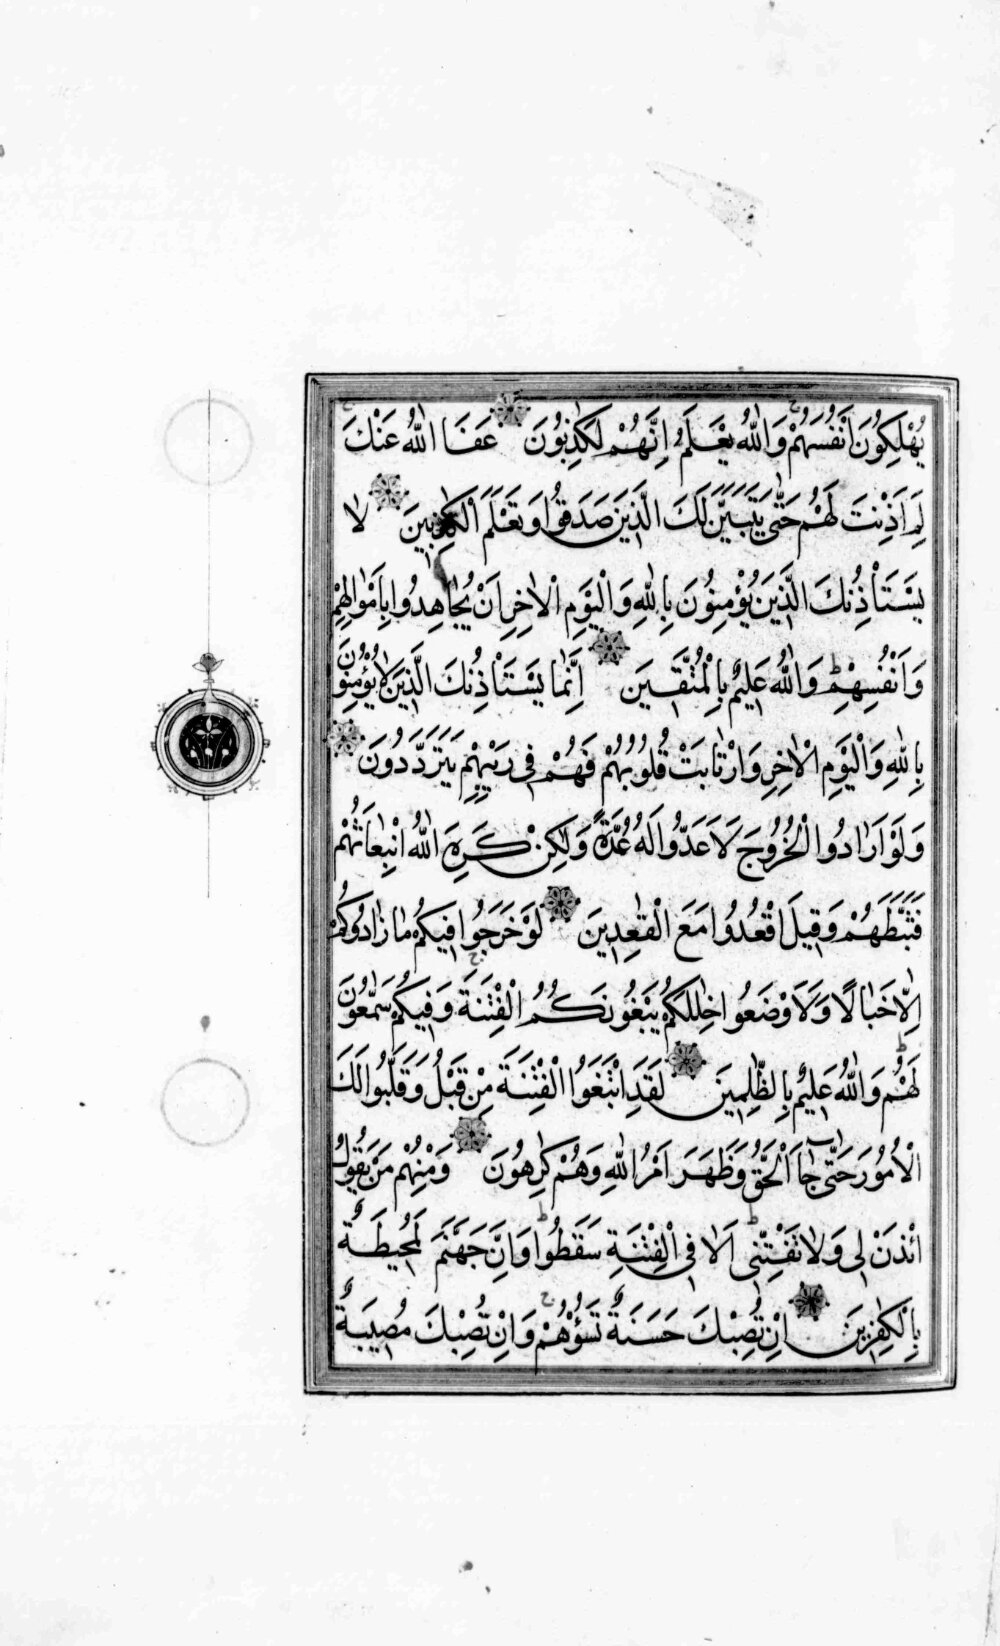 يُهْلِكُونَ اَنْفُسَهُمْ وَاللّٰهُ يَعْلَمُ اِنَّهُمْ لَكٰذِبُونَ عَفَا اللّٰهُ عَنْكَ
لِمَ اَذِنْتَ لَهُمْ حَتّٰى يَتَبَيَّنَ لَكَ الَّذِينَ صَدَقُوا وَتَعْلَمَ الْكٰذِبِينَ لَا
يَسْتَأْذِنُكَ الَّذِينَ يُؤْمِنُونَ بِاللّٰهِ وَالْيَوْمِ الْاٰخِرِ اَنْ يُجَاهِدُوا بِاَمْوَالِهِمْ
وَاَنْفُسِهِمْ وَاللّٰهُ عَلِيمٌ بِالْمُتَّقِينَ اِنَّمَا يَسْتَأْذِنُكَ الَّذِينَ لَا يُؤْمِنُونَ
بِاللّٰهِ وَالْيَوْمِ الْاٰخِرِ وَارْتَابَتْ قُلُوبُهُمْ فَهُمْ فِى رَيْبِهِمْ يَتَرَدَّدُونَ
وَلَوْ اَرَادُوا الْخُرُوجَ لَاَعَدُّوا لَهُ عُدَّةً وَلٰكِنْ كَرِهَ اللّٰهُ انْبِعَاثَهُمْ
فَثَبَّطَهُمْ وَقِيلَ اقْعُدُوا مَعَ الْقٰعِدِينَ لَوْ خَرَجُوا فِيكُمْ مَا زَادُوكُمْ
اِلَّا خَبَالًا وَلَاَوْضَعُوا خِلٰلَكُمْ يَبْغُونَكُمُ الْفِتْنَةَ وَفِيكُمْ سَمّٰعُونَ
لَهُمْ وَاللّٰهُ عَلِيمٌ بِالظّٰلِمِينَ لَقَدِ ابْتَغَوُا الْفِتْنَةَ مِنْ قَبْلُ وَقَلَّبُوا لَكَ
الْاُمُورَ حَتّٰى جَٓا الْحَقُّ وَظَهَرَ اَمْرُ اللّٰهِ وَهُمْ كٰرِهُونَ وَمِنْهُمْ مَنْ يَقُولُ
ائْذَنْ لِى وَلَا تَفْتِنِّى اَلَا فِى الْفِتْنَةِ سَقَطُوا وَاِنَّ جَهَنَّمَ لَمُحِيطَةٌ
بِالْكٰفِرِينَ اِنْ تُصِبْكَ حَسَنَةٌ تَسُؤْهُمْ وَاِنْ تُصِبْكَ مُصِيبَةٌ